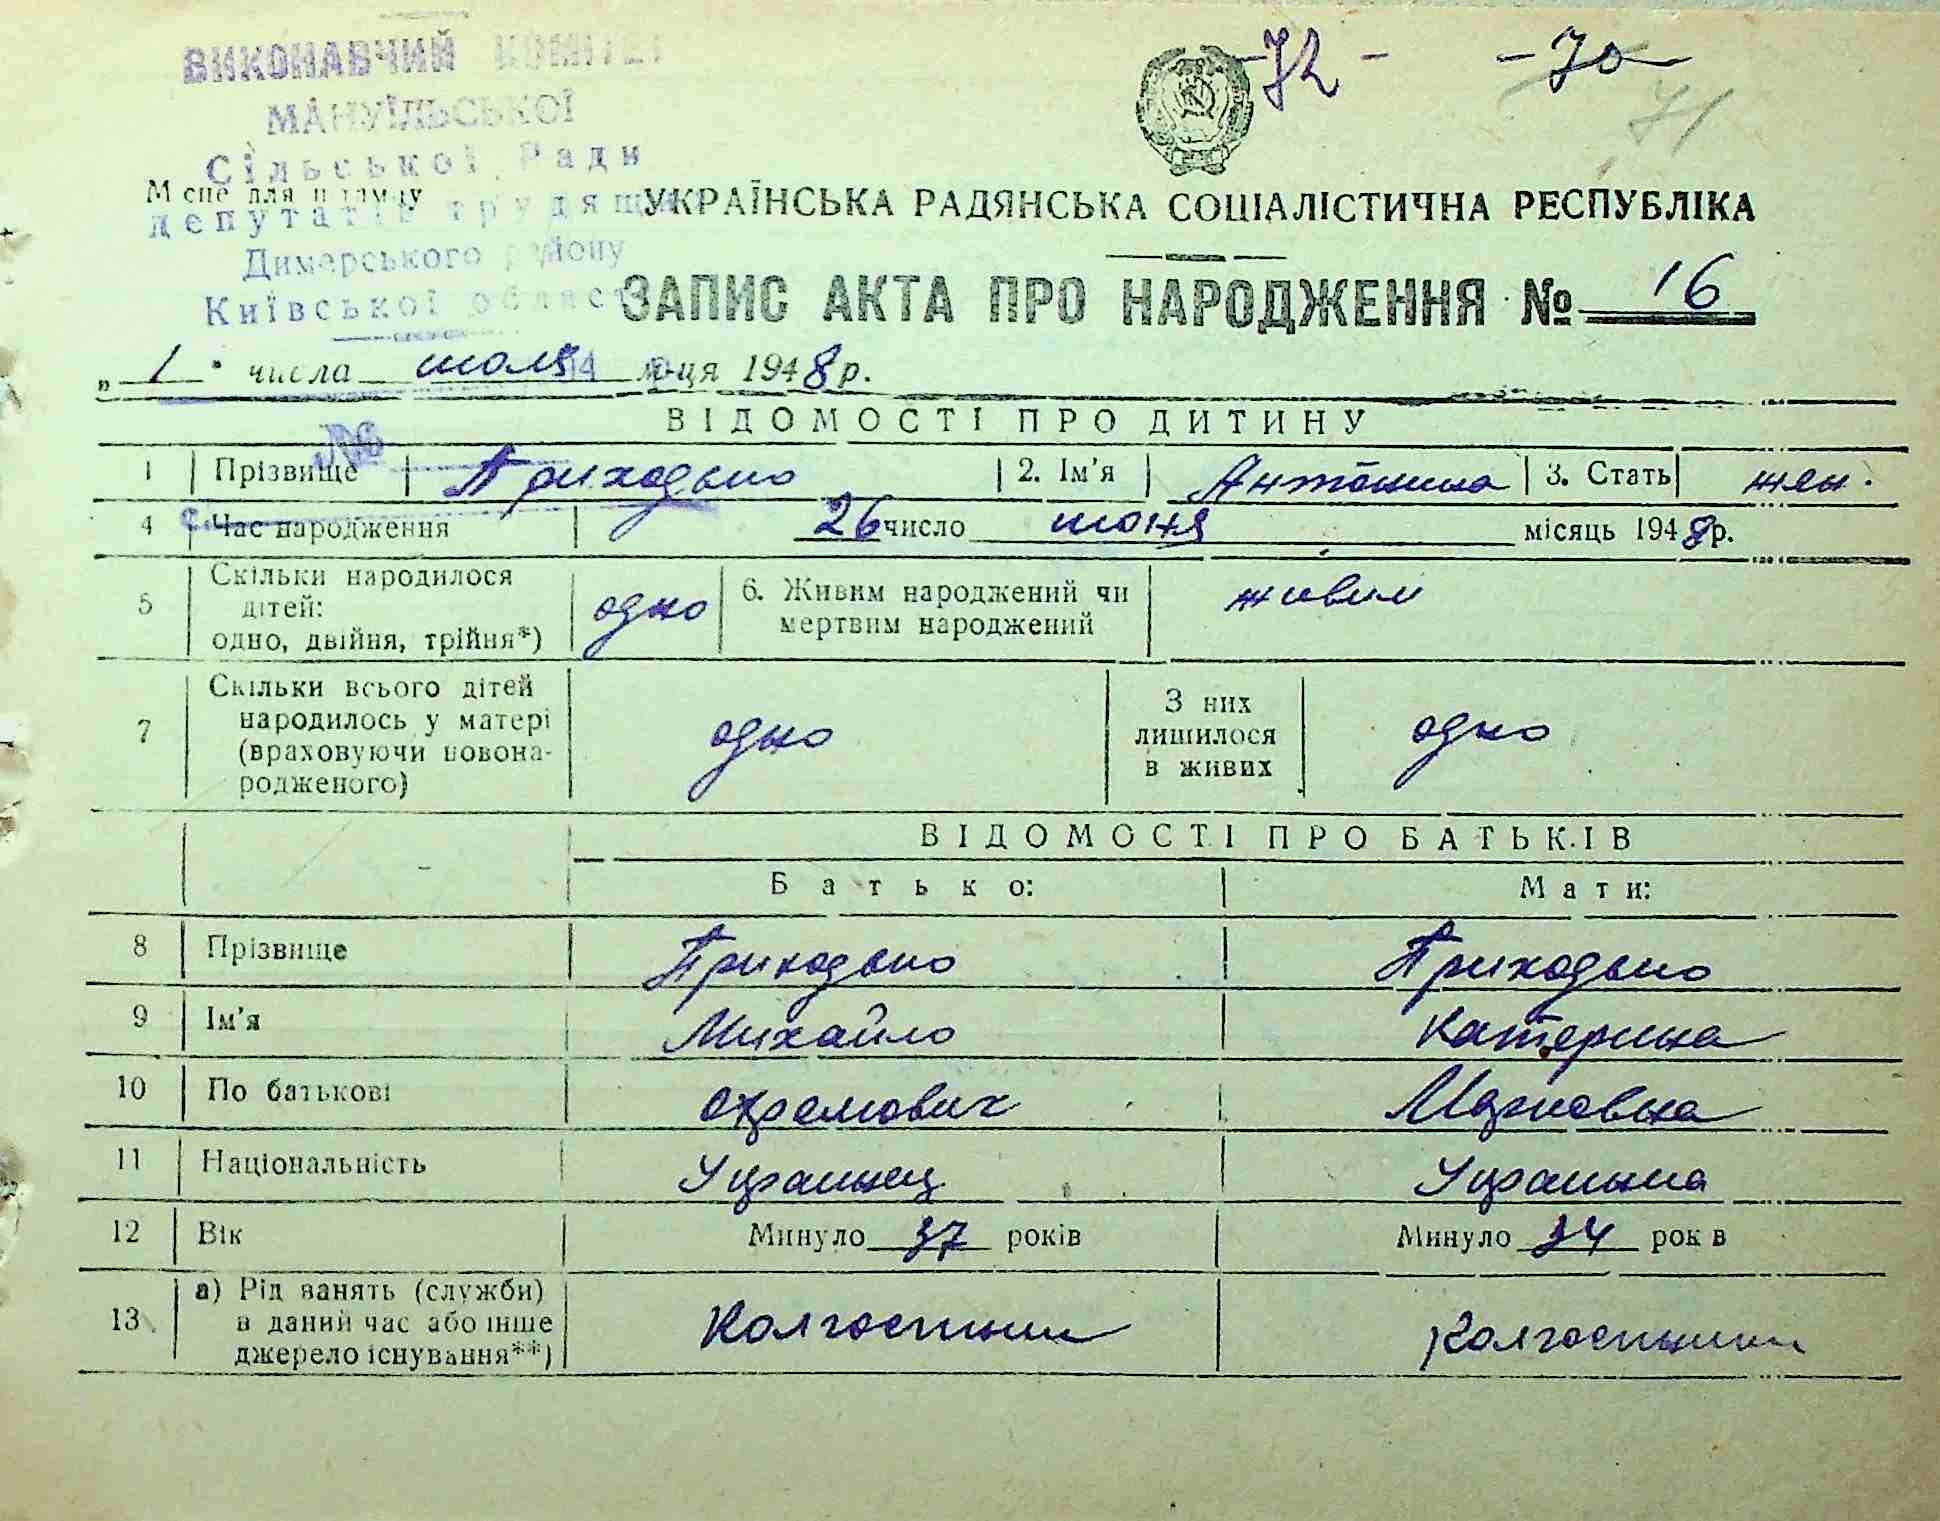 -72- -70-
71
ВИКОНАВЧИЙ КОМІТЕТ
МАНУЇЛЬСЬКОЇ
Сільської Ради
Місце для штампу
депутатів трудящих
Димерського району
Київської області
УКРАЇНСЬКА РАДЯНСЬКА СОЦІАЛІСТИЧНА РЕСПУБЛІКА
ЗАПИС АКТА ПРО НАРОДЖЕННЯ № 16
„ 1 " числа июля м-ця 1948 р.
ВІДОМОСТІ ПРО ДИТИНУ
№
1 Прізвище Приходько 2. Ім'я Антонина 3. Стать жен.
4 Час народження 26 число июня місяць 1948 р.
5 Скільки народилося дітей: одно, двійня, трійня*) одно 6. Живим народжений чи мертвим народжений живим
7 Скільки всього дітей народилось у матері (враховуючи новонародженого) одно З них лишилося в живих одно
ВІДОМОСТІ ПРО БАТЬКІВ
Батько: Мати:
8 Прізвище Приходько Приходько
9 Ім'я Михайло Катерина
10 По батькові Охремович Марковна
11 Національність Украинец Украинка
12 Вік Минуло 37 років Минуло 34 років
13 а) Рід занять (служби) в даний час або інше джерело існування**) Колгоспник Колгоспник